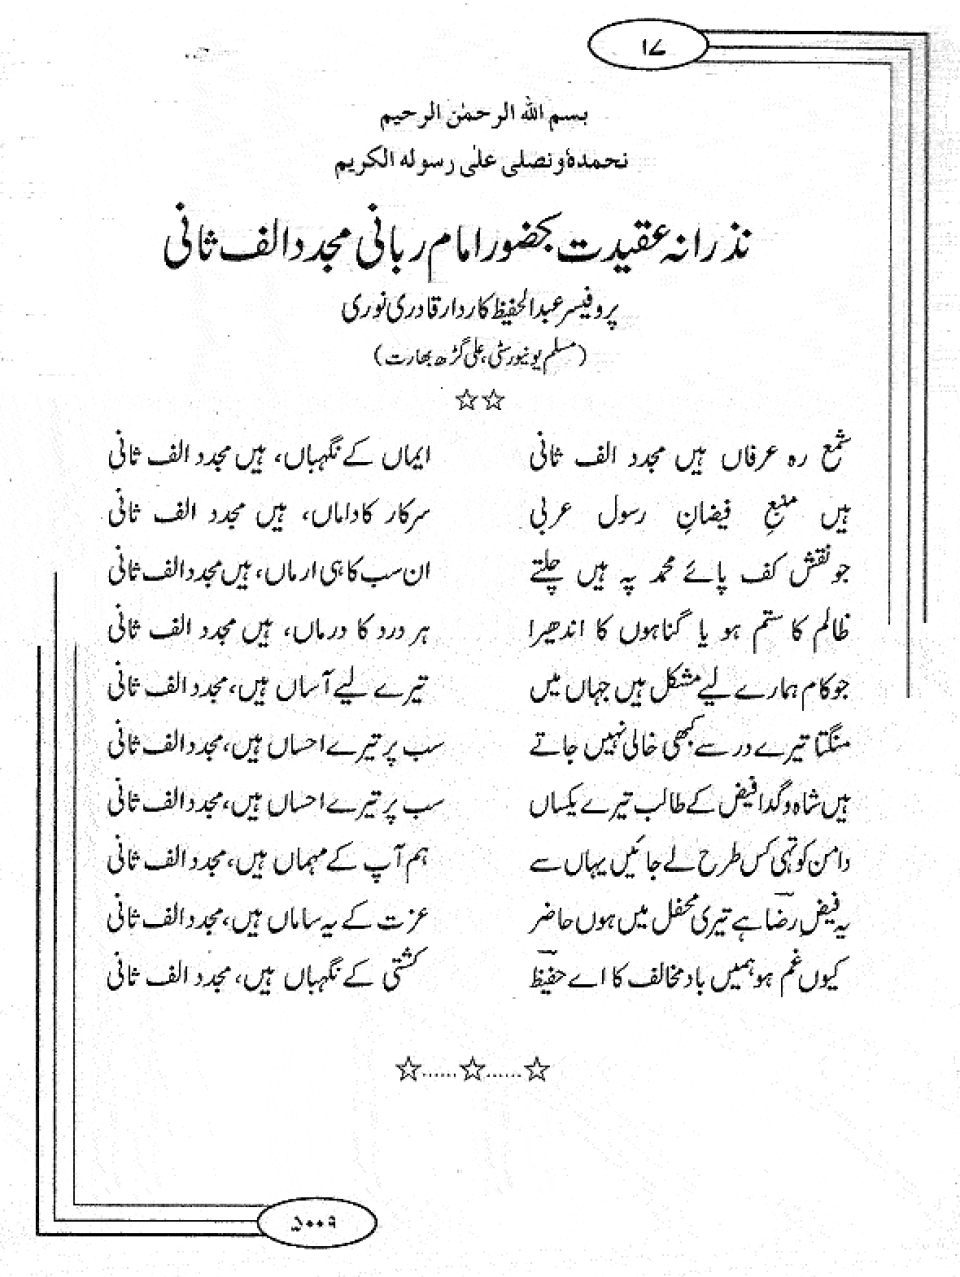 ۱۷
بسم الله الرحمٰن الرحیم
نحمدهٗ ونصلی علیٰ رسوله الکریم
نذرانہ عقیدت بحضور امام ربانی مجدد الف ثانی
پروفیسر عبدالحفیظ کاردار قادری نوری
(مسلم یونیورسٹی، علی گڑھ بھارت)
☆☆
شمع رہ عرفاں ہیں مجدد الف ثانی ایماں کے نگہباں، ہیں مجدد الف ثانی
ہیں منبعِ فیضانِ رسول عربی سرکار کا داماں، ہیں مجدد الف ثانی
جو نقش کف پائے محمد پہ ہیں چلتے ان سب کا ہی ارماں، ہیں مجدد الف ثانی
ظالم کا ستم ہو یا گناہوں کا اندھیرا ہر درد کا درماں، ہیں مجدد الف ثانی
جو کام ہمارے لیے مشکل ہیں جہاں میں تیرے لیے آساں ہیں، مجدد الف ثانی
منگتا تیرے در سے کبھی خالی نہیں جاتے سب پر تیرے احساں ہیں، مجدد الف ثانی
ہیں شاہ و گدا فیض کے طالب تیرے یکساں سب پر تیرے احساں ہیں، مجدد الف ثانی
دامن کو تہی کس طرح لے جائیں یہاں سے ہم آپ کے مہماں ہیں، مجدد الف ثانی
یہ فیضِ رضا ہے تیری محفل میں ہوں حاضر عزت کے یہ ساماں ہیں، مجدد الف ثانی
کیوں غم ہو ہمیں باد مخالف کا اے حفیظ کشتی کے نگہباں ہیں، مجدد الف ثانی
☆......☆......☆
۵۰۰۹